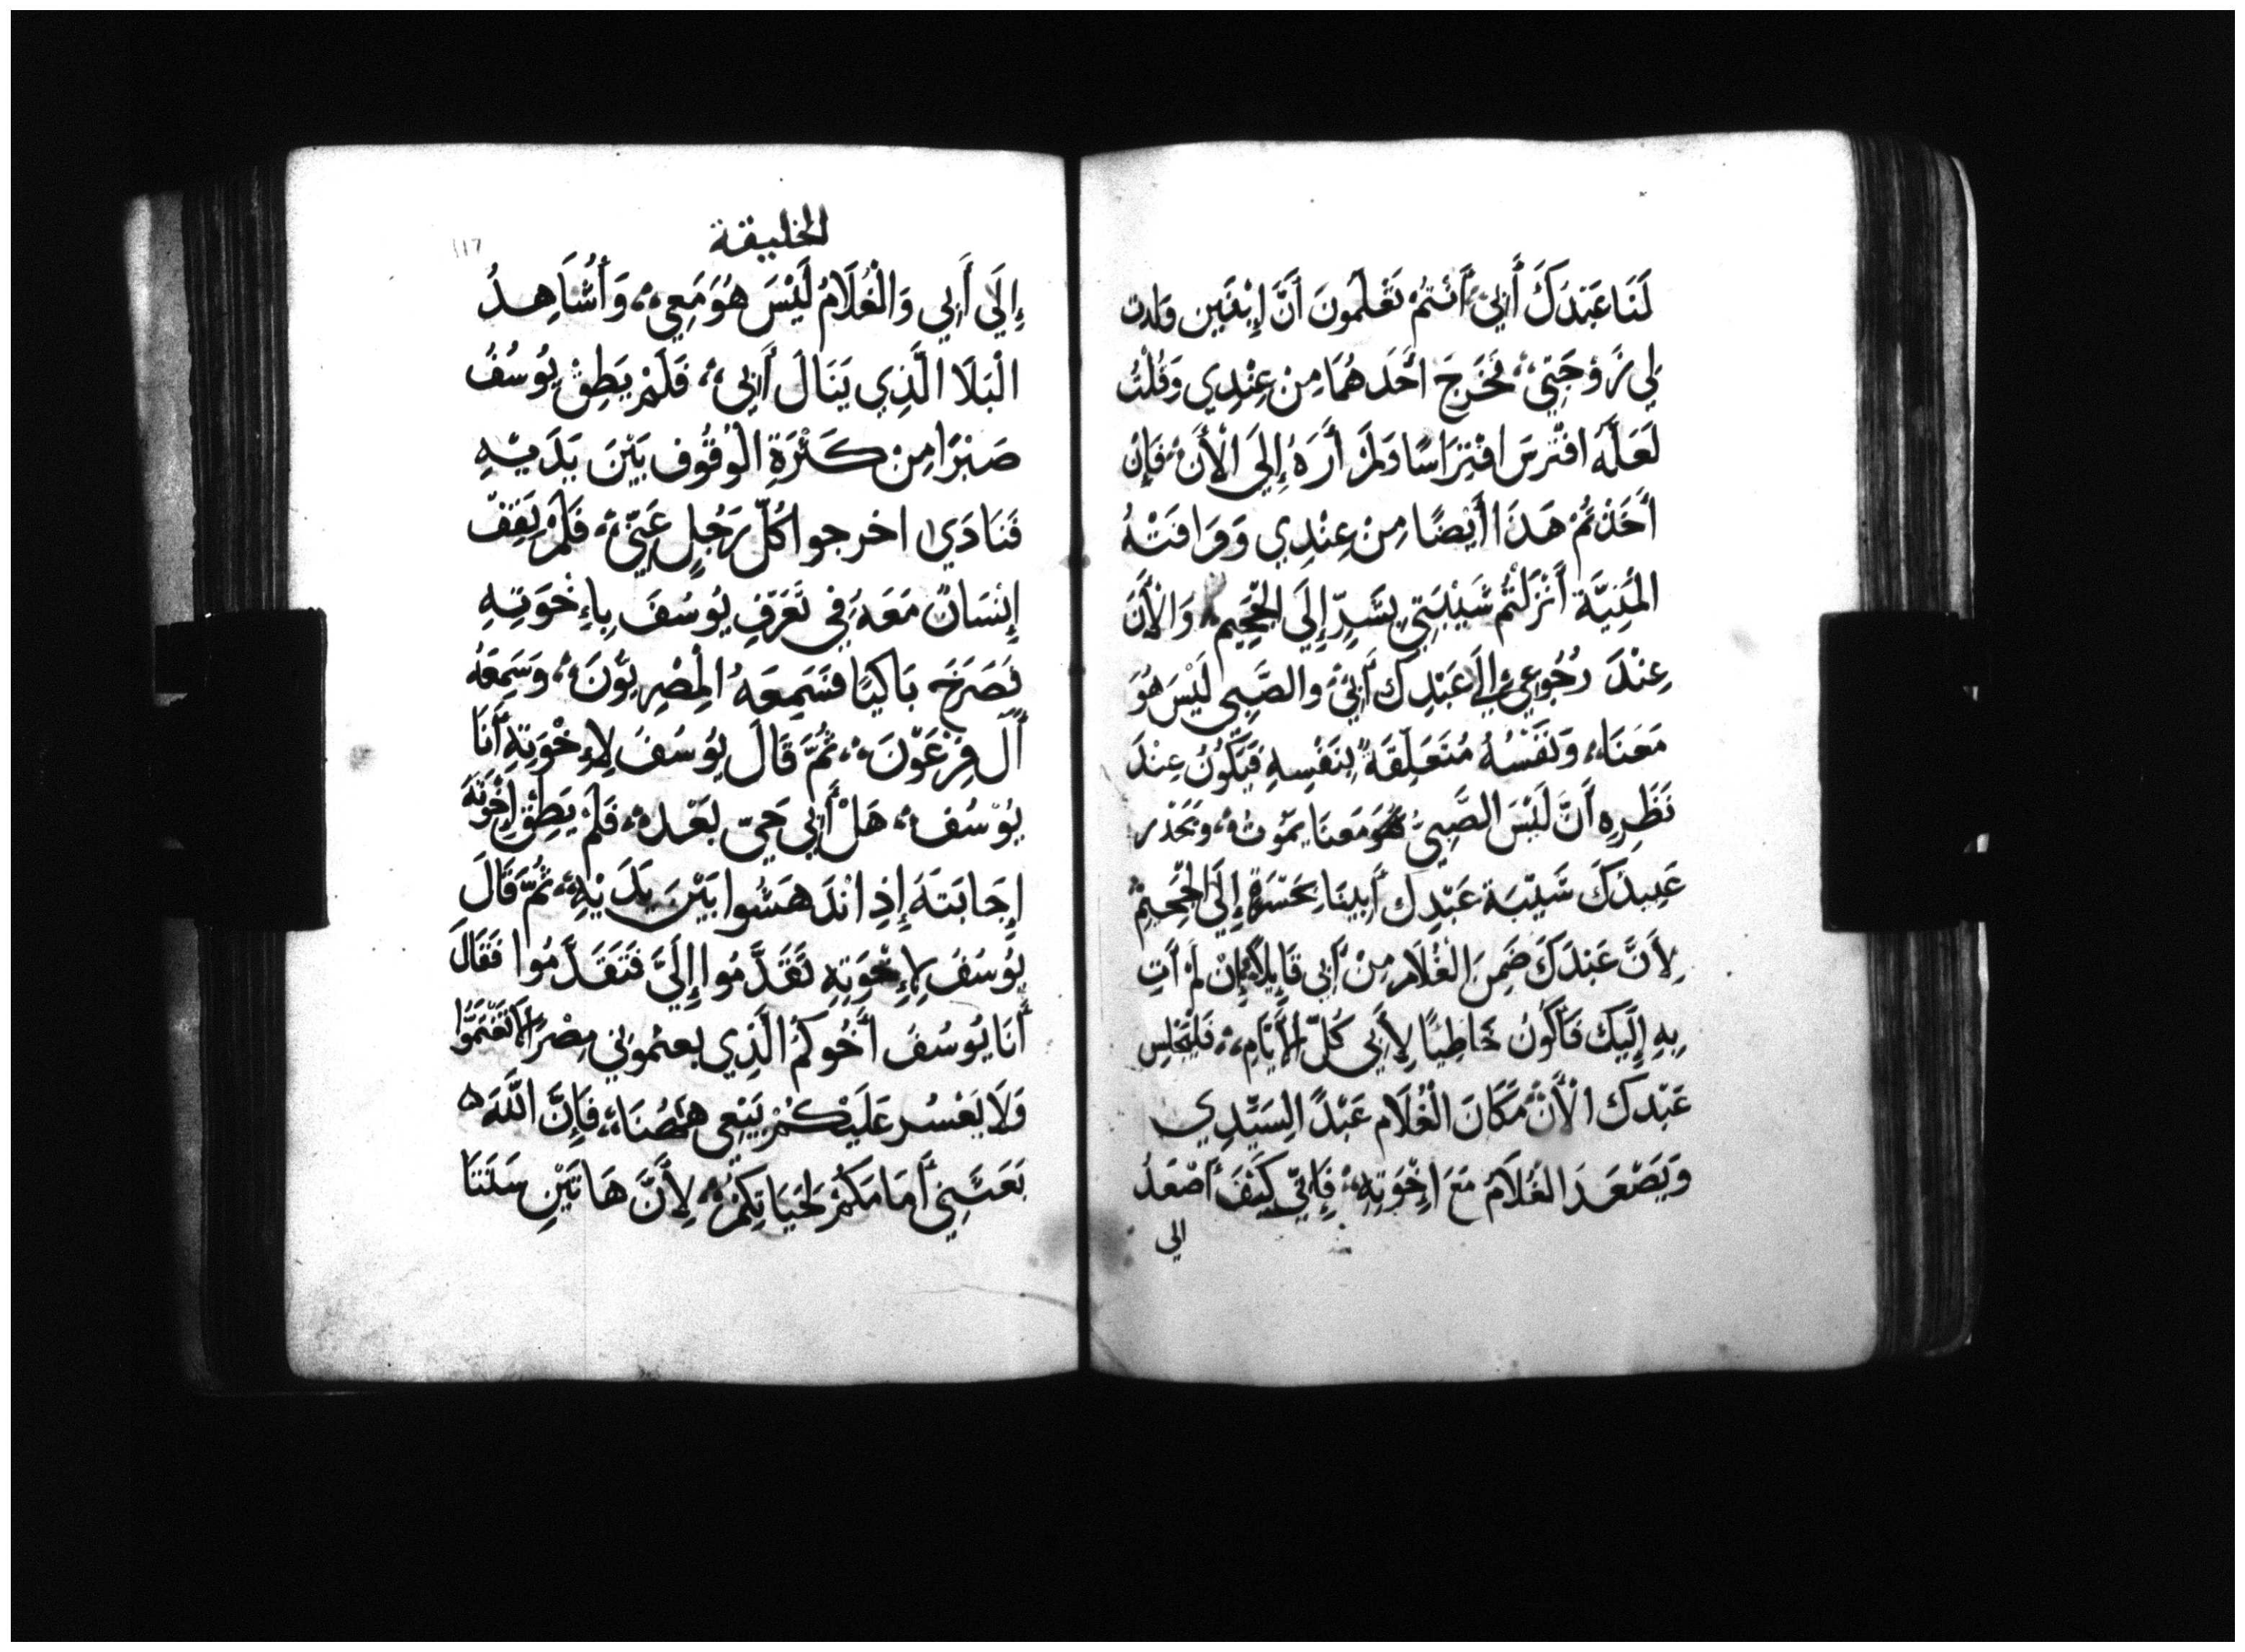 لَنَا عَبْدَكَ أَبِي أَنْتُمْ تَعْلَمُونَ أَنَّ إِبْنَيْنِ وَلدت
لِي زَوْجَتِي، فَخَرَجَ احَدَهُمَا مِنْ عِنْدِي وَقُلْتُ
لَعَلَّهُ افْتُرِسَ افْتِرَاسًا وَلَمْ أَرَهُ إِلَى الْأَنَ، فَإِنْ
أَخَذْتُمْ هَذَا أَيْضًا مِنْ عِنْدِي وَوَافَتْهُ
الْمَنِيَّة أَنْزَلْتُمْ شَيْبَتِي بِشَرٍّ إِلَى الْجَحِيمِ، وَالْأَنَ
عِنْدَ رُجُوعِي إِلَى عَبْدِك أَبِي وَالصَّبِي لَيْسَ هُوَ
مَعَنَا، وَنَفْسُهُ مُتَعَلِّقَةً بِنَفْسِهِ فَيَكُونُ عِنْدَ
نَظَرِهِ أَنَّ لَيْسَ الصَّبِيُّ هُوَ مَعَنَا يَمُوتُ، وَيَحْذر
عَبِيدَكَ شَيْبَة عَبْدِك أَبِينَا بِحَسْرَةٍ إِلَى الْجَحِيمْ
لِأَنَّ عَبْدَكَ ضَمِنَ الْغُلَامَ مِنْ أَبِي قَايِلًا إِنْ لَمْ أَتِ
بِهِ إِلَيْك فَأَكُونُ خَاطِيًا لِأَبِي كُلّ الْأَيَّامِ، فَلْيَجْلِس
عَبْدك الْأَنْ مَكَانَ الْغُلَام عَبْدً السَيِّدِي
وَيَصْعَدَ الغُلَامَ مَعَ اِخْوَتِهِ، فَإِنِّي كَيْفَ أَصْعَدُ
الى
الخليقة
١١٧
إِلَى أَبِي وَالْغُلَامُ لَيْسَ هُوَ مَعِي، وَأُشَاهِدُ
الْبَلَا الَّذِي يَنَالَ أَبِي، فَلَمْ يَطِقْ يُوسُفُ
صَبْرًا مِنْ كَثْرَةِ الْوُقُوف بَيْنَ يَدَيْهِ
فَنَادَي اخرجوا كُلّ رَجُلٍ عَنِّي، فَلَمْ يَقِفْ
إِنْسَانٌ مَعَهُ فِي تَعَرُّفِ يُوسُفَ بِإِخْوَتِهِ
فَصَرَخَ بَاكيًا فَسَمِعَهُ الْمِصْرِيُّونَ، وَسَمِعَهُ
أَلَ فِرْعَوْنَ، ثُمَّ قَالَ يُوسُفُ لِإِخْوَتِهِ أَنَا
يُوسُف، هَلْ أَبِي حَيّ بَعْد، فَلَمْ يَطِقْ إِخْوَتَهَ
إِجَابَتَهَ إِذِ انْدَهَشُوا بَيْنَ يَدَيْهِ، ثُمَّ قَالَ
يُوسُفَ لِإِخْوَتِهِ تَقَدَّمُوا إِلَيَّ فَتَقَدَّمُوا فَقَالَ
أَنَا يُوسُفُ أَخُوكُمُ الَّذِي بعتُمُوني مِصْرَ لَا تَغْتَمُّوا
وَلَا يَعْسُر عَلَيْكُمْ بَيْعِي هَهُنَا، فَإِنَّ اللَّهَ ه
بَعَثَنِي أَمَامَكُمْ لِحَيَاتِكُمْ، لِأَنَّ هَاتَيْنِ سَنَتَا